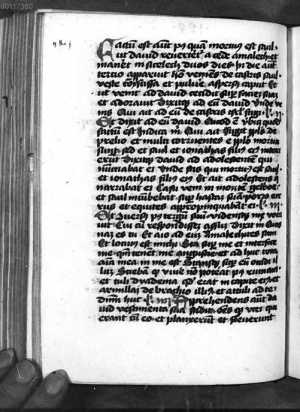 Factū est aut pꝰ quā mortuꝰ est saul
ut dauid reuerteret a cede amalech et
maneret in sicelech duos dies In die aut
tertio apparuit hō veniēs de castris saul
veste cōscissa et puluie aspersꝰ caput Et
ut venit ad dauid cecidit sup faciē suā
et adorauit dixitqꝫ ad eū dauid vnde ve
nis Qui ait ad eū de castris isrl fugi
Et dixit ad eū dauid
factū est indica m Qui ait fugit pplꝰ de
prelio et multi corruentes e pplo mortui
sunt sed et saul et ionathas filiꝰ eiꝰ interi
erūt dixitqꝫ dauid ad adolescente qui
nunciabat ei vnde scis qui mortuꝰ est saul
et ionathas filiꝰ eiꝰ Et ait adolescens q
narrabat ei Casu veni in monte gelboe
et saul incūbebat sup hastā suā porro cur
rus et equites appropinquabāt ei
Et ꝯuersꝰ pꝰ tergū suū vidensqꝫ me voca
uit Cui cū respondissē assū dixit m Quis
nā es tu Et aio ad eū amalechites sum
Et locutꝰ est michi Sta sup me et interfice
me qm tenet me angustie et adhuc tota
aīa mea in me est Stansqꝫ sup eū occidi il
lū Sciebā eī qꝫ viue nō poterat pꝰ ruinam
et tuli dyadema qd erat in capite eiꝰ et
armillā de brachio illiꝰ et attuli ad te
dnm huc Apprehendens aut da
uid vestimenta sua scidit oēsqꝫ viri qui
erant cū eo et planxerūt et fleuerunt